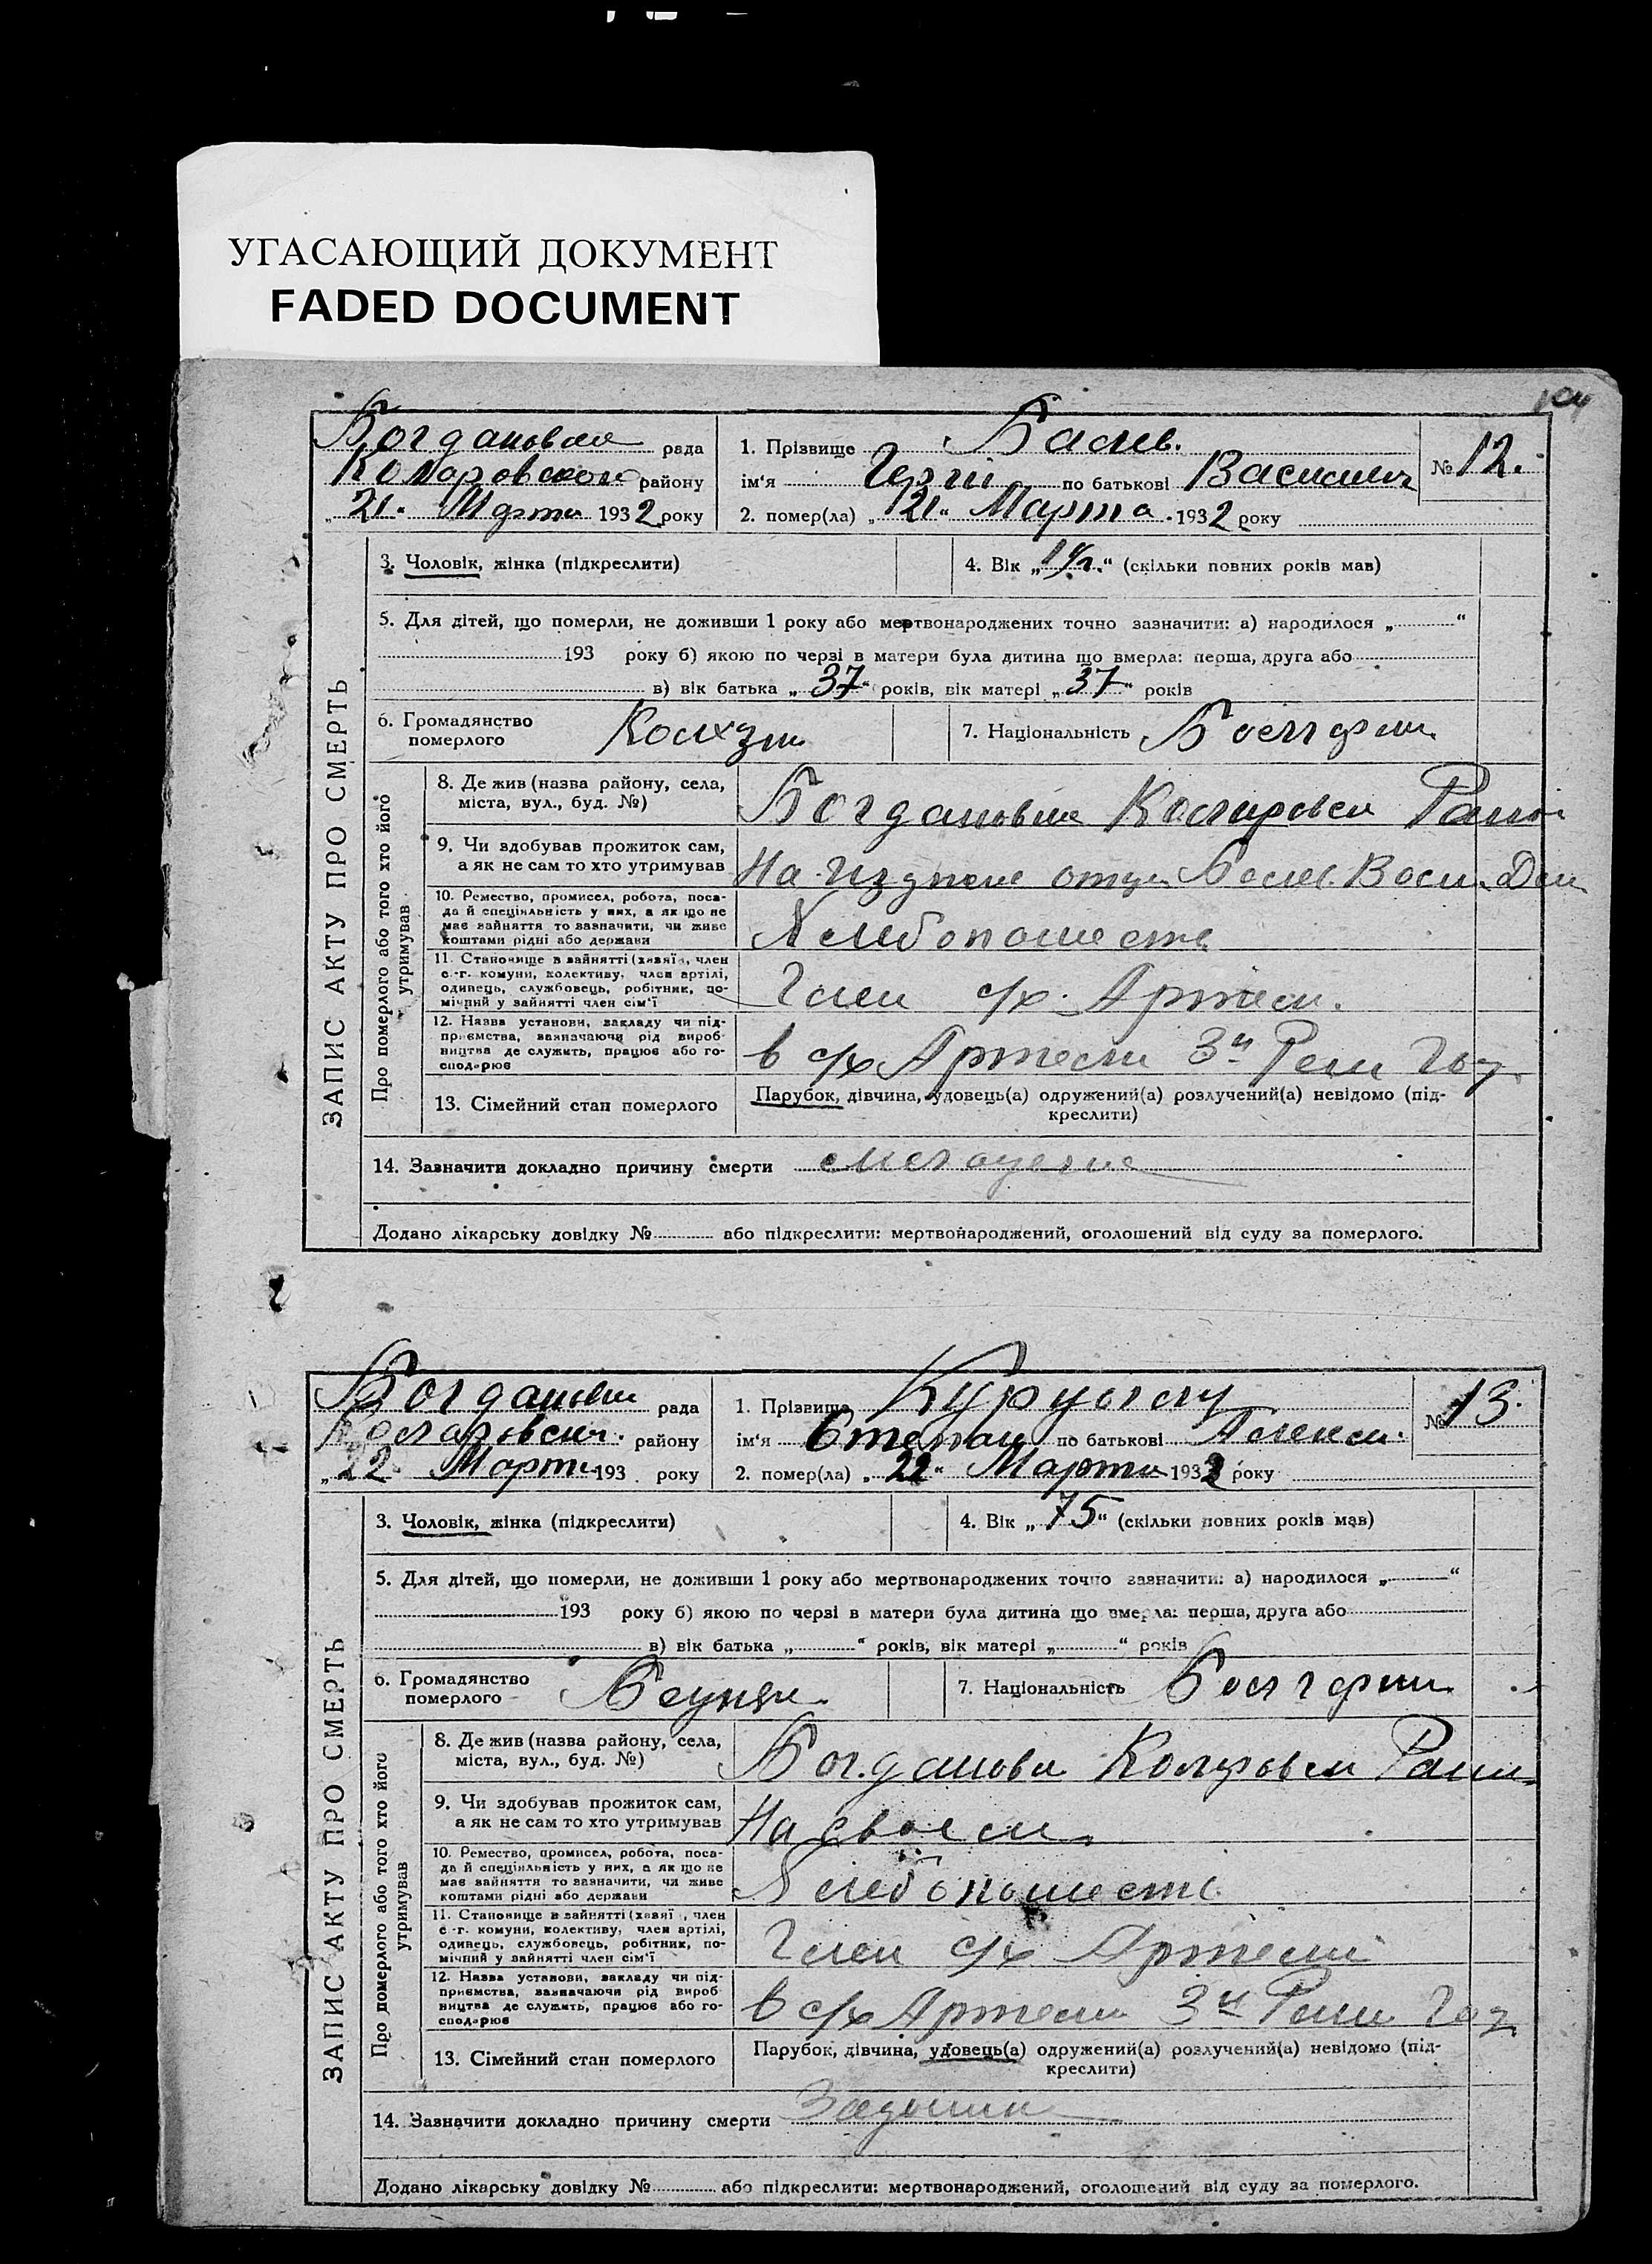 УГАСАЮЩИЙ ДОКУМЕНТ
FADED DOCUMENT
ЗАПИС АКТУ ПРО СМЕРТЬ
Богдановка рада
району
„21“ Марта 1932 року
1. Прізвище Балев.
ім'я Георгій по батькові Василич
2. помер(ла) „21“ Марта 1932 року
№ 12.
3. Чоловік, жінка (підкреслити)
4. Вік „ “ (скільки повних років мав)
5. Для дітей, що померли, не доживши 1 року або мертвонароджених точно зазначити: а) народилося „ “
193 року б) якою по черзі в матери була дитина що вмерла: перша, друга або
в) вік батька „37“ років, вік матері „37“ років
6. Громадянство
померлого
7. Національність
Про померлого або того хто його
утримував
8. Де жив (назва району, села,
міста, вул., буд. №)
Богдановка
9. Чи здобував прожиток сам,
а як не сам то хто утримував
На отца
10. Ремество, промисел, робота, поса-
да й спеціяльність у них, а як що не
має зайняття то зазначити, чи живе
коштами рідні або держави
Хлебопашест
11. Становище в зайнятті (хазяї , член
с.-г. комуни, колективу, член артілі,
одинець, службовець, робітник, по-
мічний у зайнятті член сім'ї
Член с/х. Артели.
12. Назва установи, закладу чи під-
приємства, зазначаючи рід вироб-
ництва де служить, працює або го-
сподарює
в с/х Артели 3й Реш Год.
13. Сімейний стан померлого
Парубок, дівчина, удовець(а) одружений(а) розлучений(а) невідомо (під-
креслити)
14. Зазначити докладно причину смерти
Додано лікарську довідку № або підкреслити: мертвонароджений, оголошений від суду за померлого.
ЗАПИС АКТУ ПРО СМЕРТЬ
Богдановк рада
району
„22“ Марта 193 року
1. Прізвище
ім'я Степан по батькові
2. помер(ла) „22“ Марта 1932 року
№ 13.
3. Чоловік, жінка (підкреслити)
4. Вік „75“ (скільки повних років мав)
5. Для дітей, що померли, не доживши 1 року або мертвонароджених точно зазначити: а) народилося „ “
193 року б) якою по черзі в матери була дитина що вмерла: перша, друга або
в) вік батька „ “ років, вік матері „ “ років
6. Громадянство
померлого
7. Національність
Про померлого або того хто його
утримував
8. Де жив (назва району, села,
міста, вул., буд. №)
9. Чи здобував прожиток сам,
а як не сам то хто утримував
На своем
10. Ремество, промисел, робота, поса-
да й спеціяльність у них, а як що не
має зайняття то зазначити, чи живе
коштами рідні або держави
Хлебопашест
11. Становище в зайнятті (хазяї , член
с.-г. комуни, колективу, член артілі,
одинець, службовець, робітник, по-
мічний у зайнятті член сім'ї
Член с/х Артели
12. Назва установи, закладу чи під-
приємства, зазначаючи рід вироб-
ництва де служить, працює або го-
сподарює
в с/х Артели 3й Реш Год
13. Сімейний стан померлого
Парубок, дівчина, удовець(а) одружений(а) розлучений(а) невідомо (під-
креслити)
14. Зазначити докладно причину смерти
Додано лікарську довідку № або підкреслити: мертвонароджений, оголошений від суду за померлого.